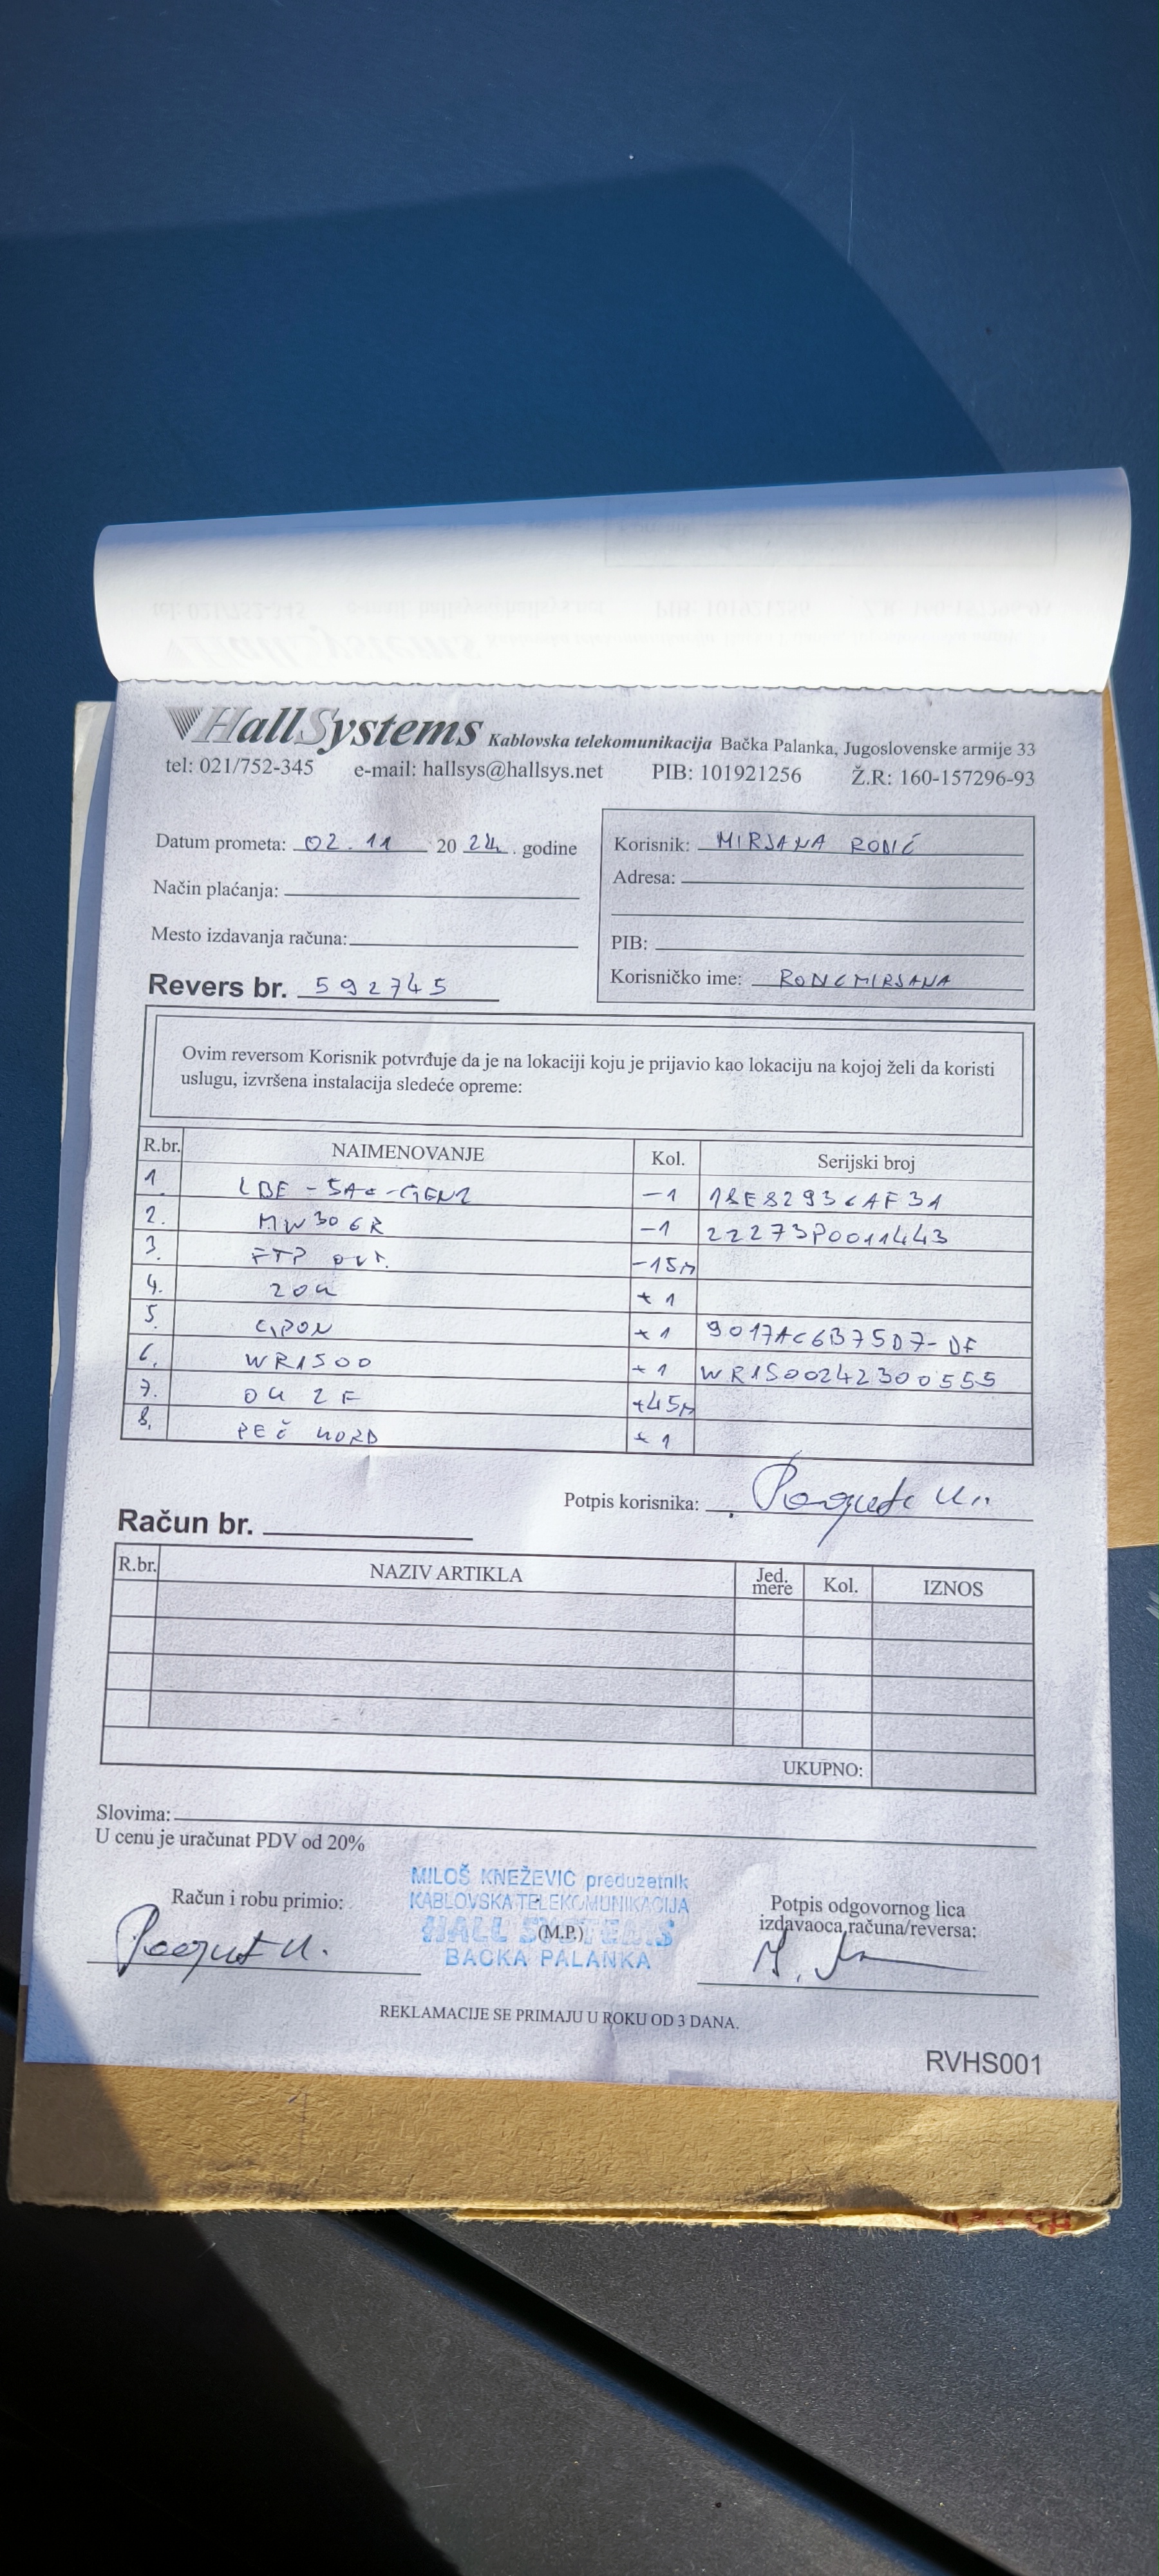 HallSystems Kablovska telekomunikacija Bačka Palanka, Jugoslovenske armije 33
tel: 021/752-345 e-mail: hallsys@hallsys.net PIB: 101921256 Ž.R: 160-157296-93
Datum prometa: 02.11 20 24. godine
Način plaćanja:
Mesto izdavanja računa:
Revers br. 592745
Korisnik: MIRJANA RONIĆ
Adresa:
PIB:
Korisničko ime: RONCMIRJANA
Ovim reversom Korisnik potvrđuje da je na lokaciji koju je prijavio kao lokaciju na kojoj želi da koristi
uslugu, izvršena instalacija sledeće opreme:
R.br. NAIMENOVANJE Kol. Serijski broj
1. LBE-5AC-GEN2 -1 18E82936AF3A
2. MW306R -1 22273P0011443
3. FTP OUT. -15m
4. ZOK +1
5. GPON +1 9017AC6B75D7-DF
6. WR1500 +1 WR1500242300555
7. OK 2F +45m
8. PEČ KORD +1
Potpis korisnika:
Račun br.
R.br. NAZIV ARTIKLA Jed. mere Kol. IZNOS
UKUPNO:
Slovima:
U cenu je uračunat PDV od 20%
Račun i robu primio:
MILOŠ KNEŽEVIĆ preduzetnik
KABLOVSKA TELEKOMUNIKACIJA
HALL SYSTEMS
(M.P.)
BAČKA PALANKA
Potpis odgovornog lica
izdavaoca računa/reversa:
REKLAMACIJE SE PRIMAJU U ROKU OD 3 DANA.
RVHS001